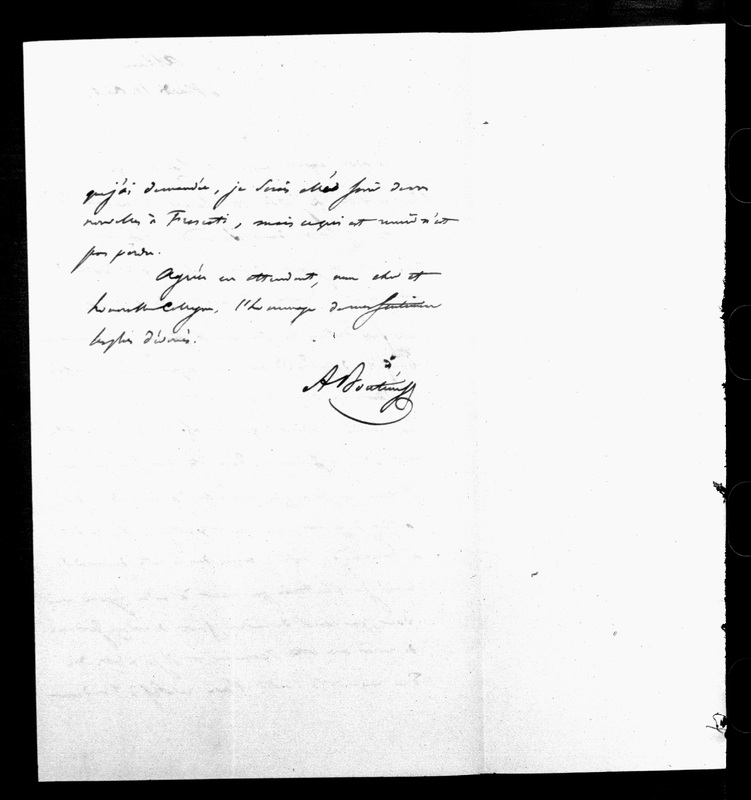 que j'ai demandée, je serais allé savoir de vos
nouvelles à Frascati, mais ce qui est remis n'est
pas perdu.
Agréez en attendant, mon cher et
honorable Collègue, l'hommage de mes sentimens
les plus dévoués.
A